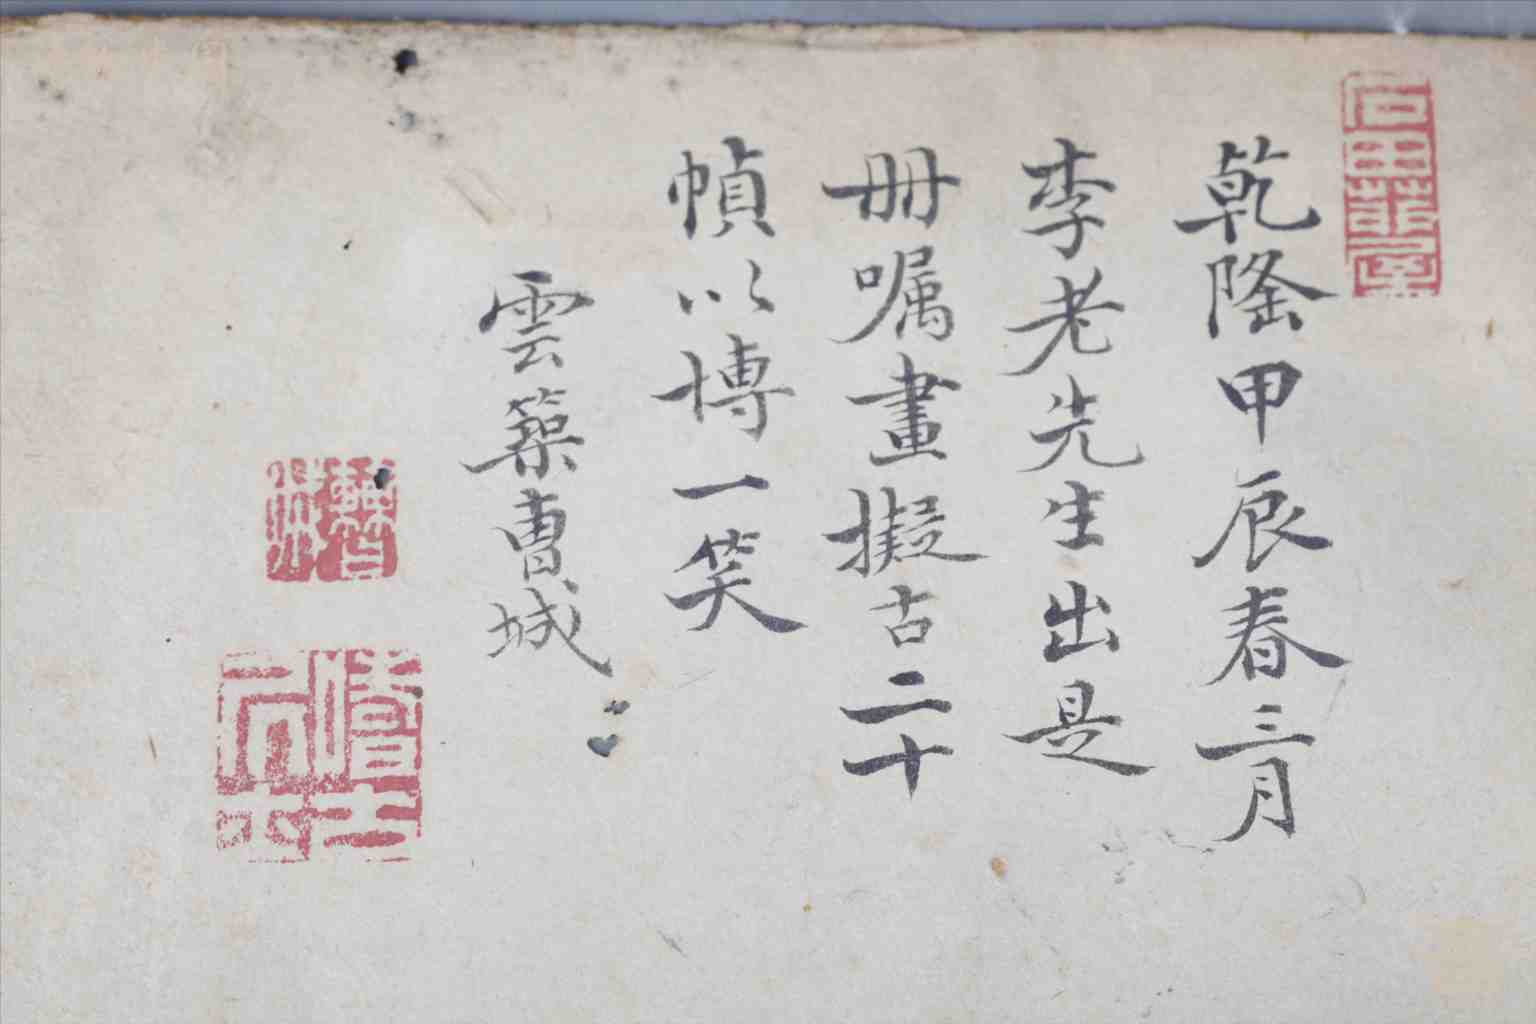 乾隆甲辰春三月
李老先生出是
冊嘱畫擬古二十
幀以博一笑
雲築曹城